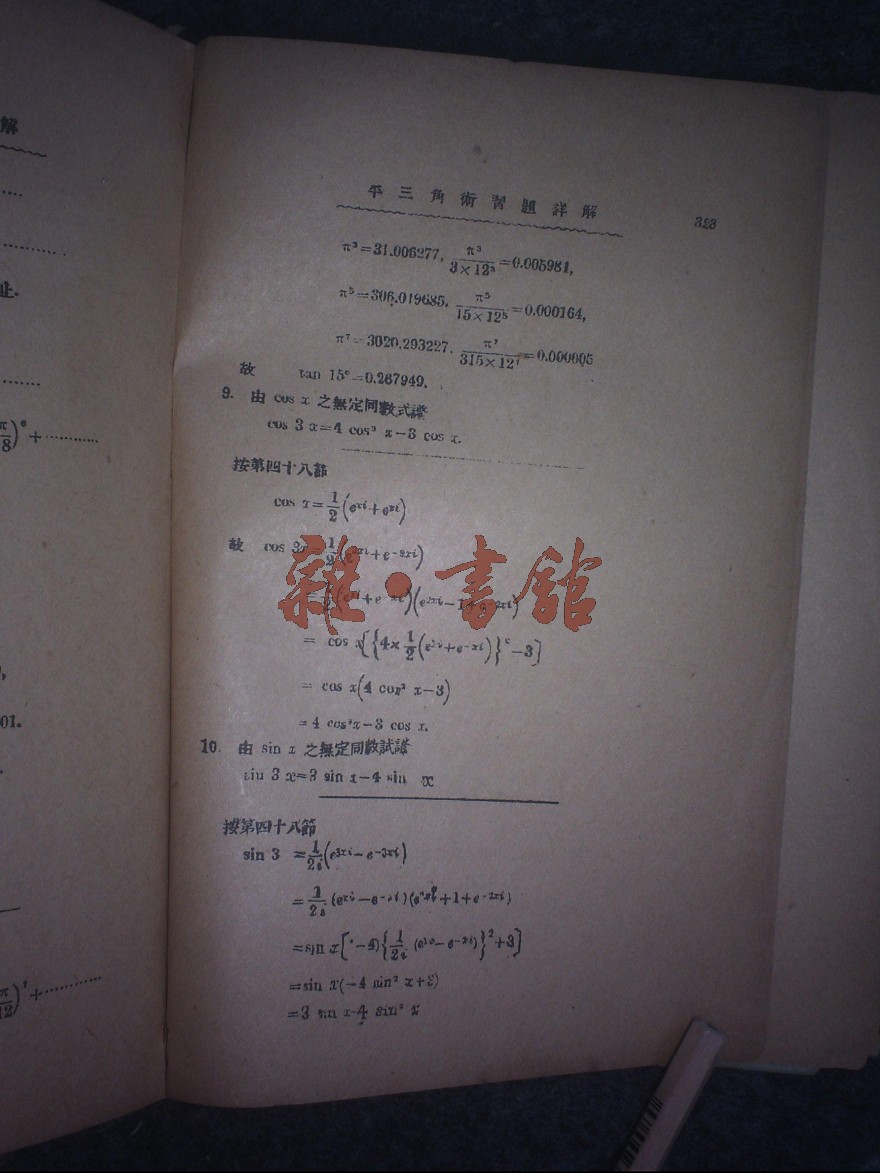 解
止.
01.
平三角術習題詳解 323
π³=31.006277, π³/(3×12³)=0.005981,
π⁵=306.019685, π⁵/(15×12⁵)=0.000164,
π⁷=3020.293227, π⁷/(315×12⁷)=0.000005
故 tan 15°=0.267949.
9. 由 cos x 之無定同數式證
cos 3 x=4 cos³ x-3 cos x.
按第四十八節
cos x=1/2(e^{xi}+e^{xi})
故 cos 3x=1/2(e^{3xi}+e^{-3xi})
雜·書館
= cos x[{4×1/2(e^{xi}+e^{-xi})}²-3]
= cos x(4 cos² x-3)
=4 cos³x-3 cos x.
10. 由 sin x 之無定同數試證
siu 3 x=3 sin x-4 sin x
按第四十八節
sin 3 =1/2i(e^{3xi}-e^{-3xi})
=1/2i(e^{xi}-e^{-xi})(e^{2xi}+1+e^{-2xi})
=sin x[(-4){1/2i(e^{xi}-e^{-xi})}²+3]
=sin x(-4 sin² x+3)
=3 sin x-4 sin³ x